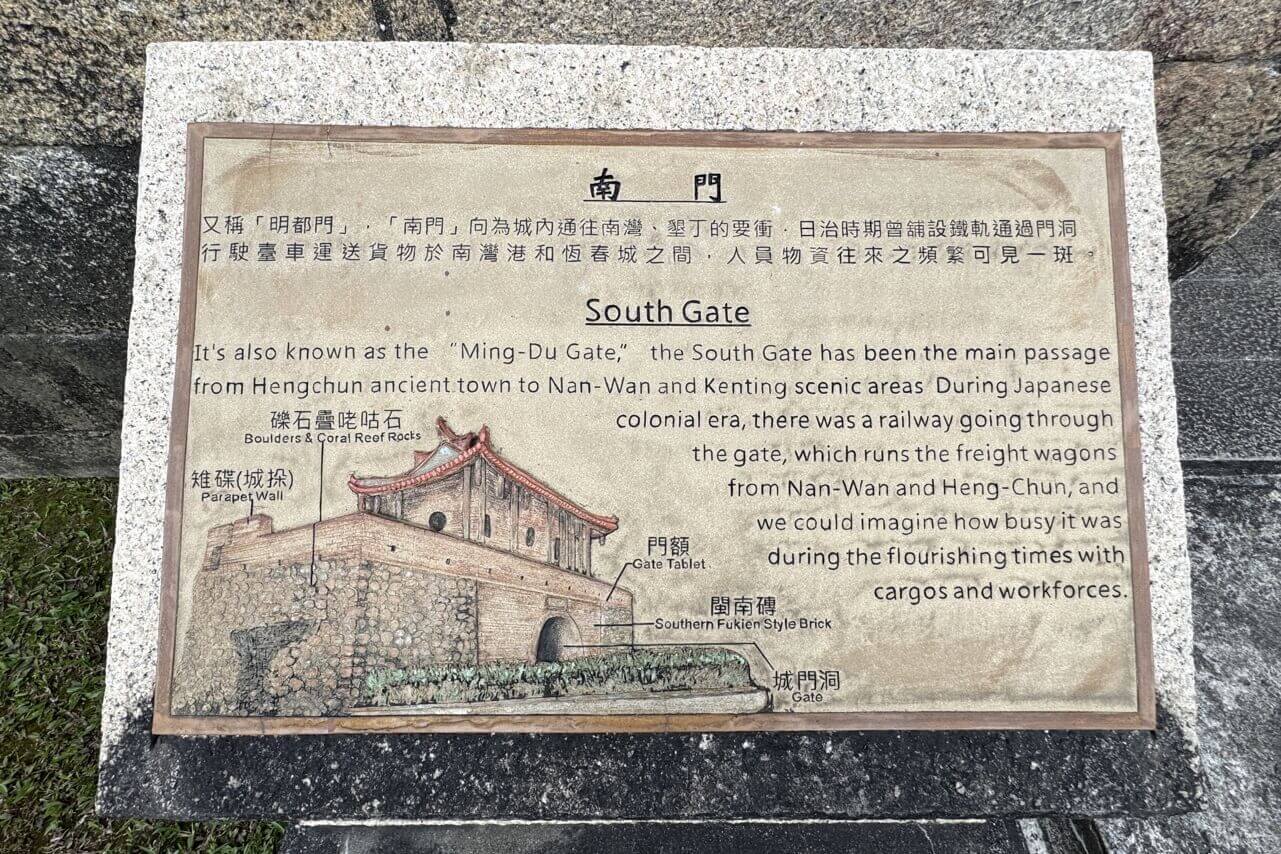 南 門
又稱「明都門」，「南門」向為城內通往南灣、墾丁的要衝，日治時期曾舖設鐵軌通過門洞
行駛臺車運送貨物於南灣港和恆春城之間，人員物資往來之頻繁可見一斑。
South Gate
It's also known as the “Ming-Du Gate,” the South Gate has been the main passage
from Hengchun ancient town to Nan-Wan and Kenting scenic areas During Japanese
colonial era, there was a railway going through
the gate, which runs the freight wagons
from Nan-Wan and Heng-Chun, and
we could imagine how busy it was
during the flourishing times with
cargos and workforces.
礫石疊咾咕石
Boulders & Coral Reef Rocks
雉碟(城垛)
Parapet Wall
門額
Gate Tablet
閩南磚
Southern Fukien Style Brick
城門洞
Gate